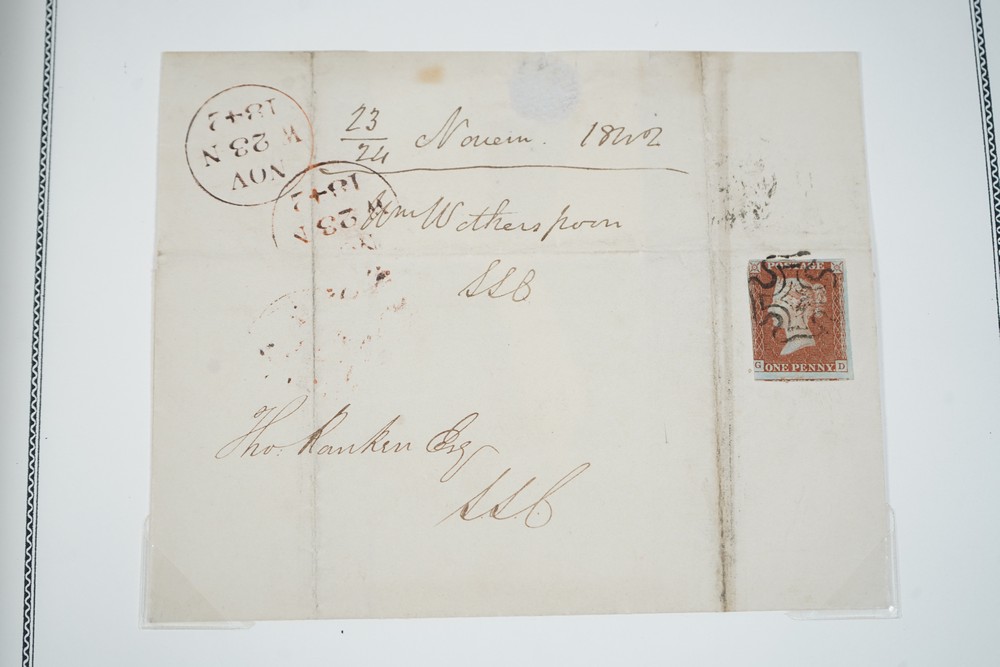 NOV
W 23 N
1842
W 23 N
1842
23
24 Novem. 1842
Wm Wotherspoon
SSC
POSTAGE
G ONE PENNY D
Tho. Ranken Esq
SSC